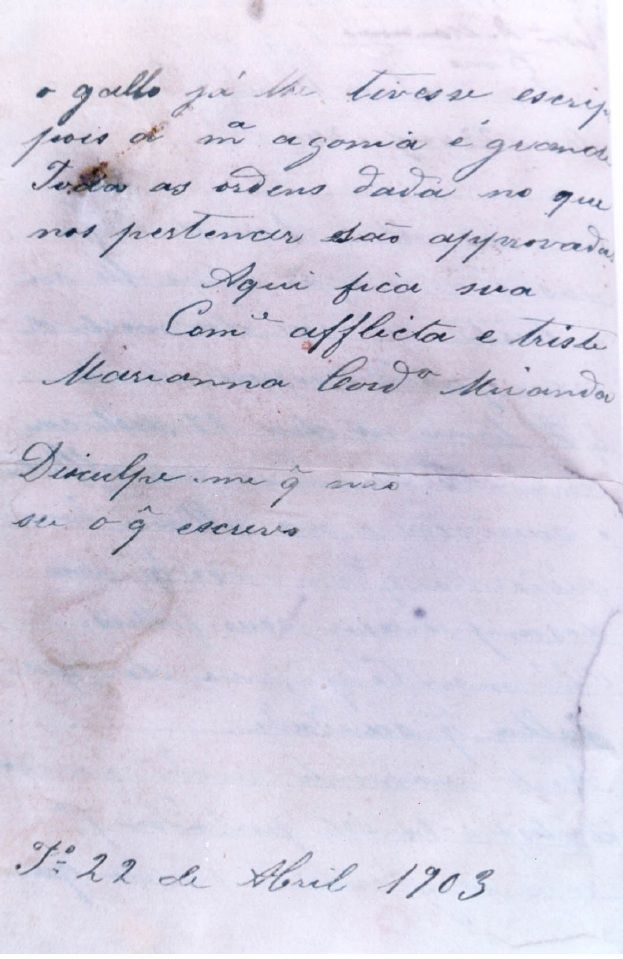 o gallo já lhe tivesse escrip
pois a mª agonia é grande
Toda as ordens dada no que
nos pertencer são approvada
Aqui fica sua
Comᵉ afflicta e triste
Marianna Cordº Miranda
Disculpe-me q̂ não
sei o q̂ escrevo
Fº 22 de Abril 1903